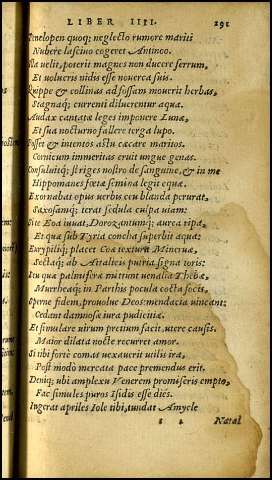 LIBER IIII. 291
Penelopen quoq; neglecto rumore mariti
Nubere lasciuo cogeret Antinoo.
Illa uelit, poterit magnes non ducere ferrum,
Et uolucris nidis esse nouerca suis.
Quippe & collinas ad fossam mouerit herbas,
Stagnaq; currenti diluerentur aqua.
Audax cantatæ leges imponere Lunæ,
Et sua nocturno fallere terga lupo.
Posset & intentos astu cæcare maritos,
Cornicum immeritas eruit ungue genas.
Consuluitq; striges nostro de sanguine, & in me
Hippomanes fœtæ semina legit equæ.
Exornabat opus uerbis ceu blanda perurat,
Saxosamq; terat sedula culpa uiam:
Si te Eoa iuuat, Dorozanumq; aurea ripa,
Et quæ sub Tyria concha superbit aqua:
Eurypilisq; placet Coæ textura Mineruæ,
Sectaq; ab Attalicis putria signa toris:
Seu quæ palmiferæ mittunt uenalia Thebæ,
Murrheaq; in Parthis pocula cocta focis,
Sperne fidem, prouolue Deos: mendacia uincant:
Cedant damnosæ iura pudicitiæ.
Et simulare uirum pretium facit, utere causis.
Maior dilata nocte recurret amor.
Si tibi forte comas uexauerit utilis ira,
Post modo mercata pace premendus erit.
Deniq; ubi amplexu Venerem promiseris empto,
Fac simules puros Isidis esse dies.
Ingerat apriles Iole tibi, tundat Amycle
Natal